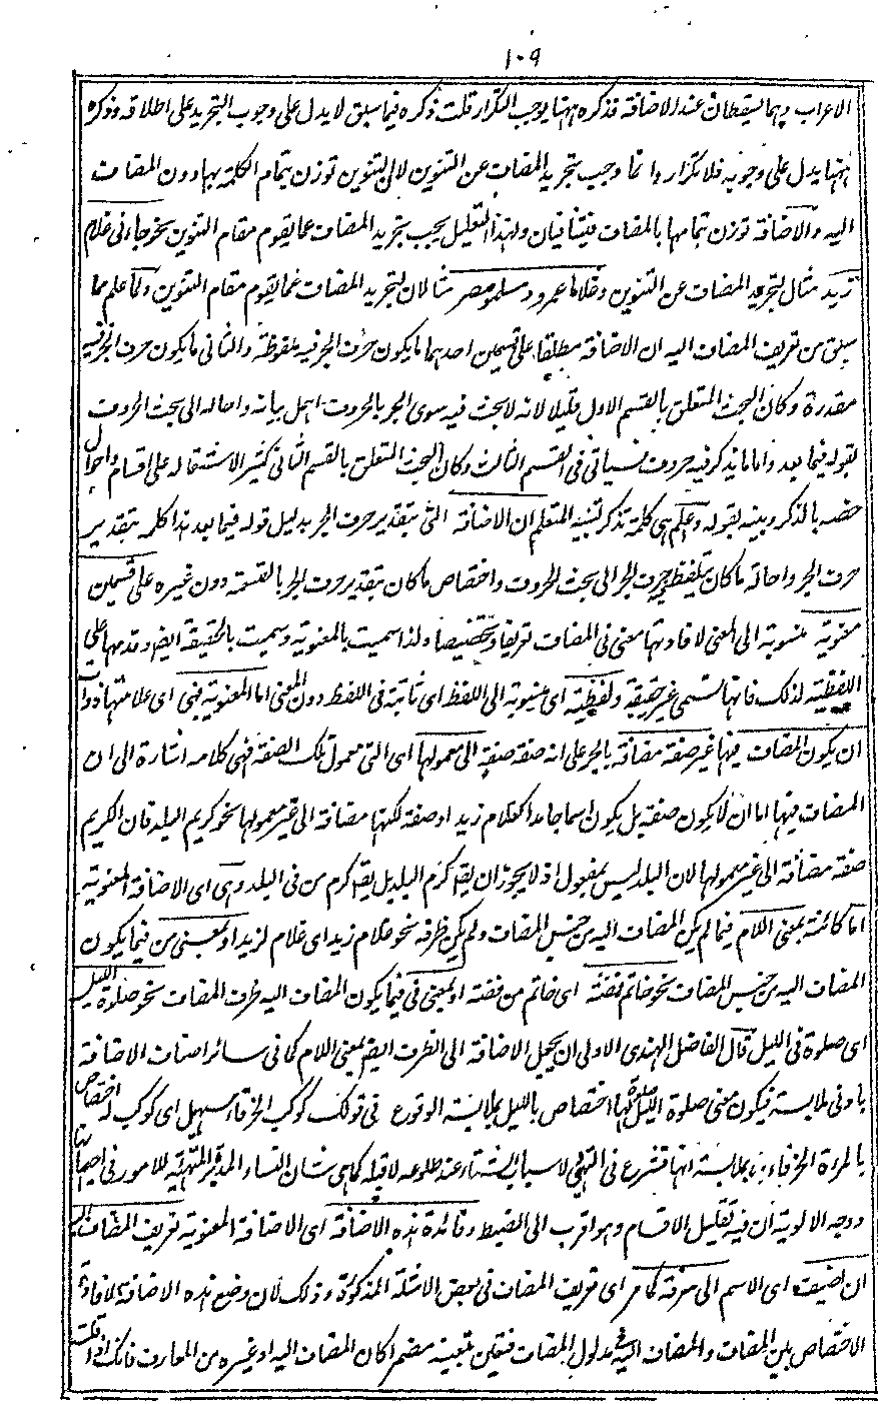 ١٠٩
الاعراب وهما يسقطان عند الاضافة فذكره ههنا يوجب التكرار قلت ذكره فيما سبق لا يدل على وجوب التجريد على اطلاقه وذكره
ههنا يدل على وجوبه فلا تكرار وانما وجب تجريد المضاف عن التنوين لان التنوين توذن بتمام الكلمة بها دون المضاف
اليه والاضافة توذن بتمامها بالمضاف فيتنافيان ولهذا التعليل يجب تجريد المضاف عما يقوم مقام التنوين نحو جاءنى غلام
زيد مثال لتجريد المضاف عن التنوين وغلاما عمرو ومسلمو مصر مثالان لتجريد المضاف عما يقوم مقام التنوين ولما علم مما
سبق من تعريف المضاف اليه ان الاضافة مطلقا على قسمين احدهما ما يكون حرف الجر فيه ملفوظة والثانى ما يكون حرف الجر فيه
مقدرة وكان البحث المتعلق بالقسم الاول قليلا لانه لا بحث فيه سوى الجر بالحروف اجمل بيانه واحاله الى بحث الحروف
بقوله فيما بعد واما ما يذكر فيه حروف فسياتى فى القسم الثالث وكان البحث المتعلق بالقسم الثانى كثير الاشتماله على اقسام واحوال
خصه بالذكر وبينه بقوله واعلم هى كلمة تذكر لتنبيه المتعلم ان الاضافة التى بتقدير حرف الجر بدليل قوله فيما بعد هذا كله بتقدير
حرف الجر واحالة ما كان بتلفظ حرف الجر الى بحث الحروف واختصاص ما كان بتقدير حرف الجر بالقسمة دون غيره على قسمين
معنوية منسوبة الى المعنى لافادتها معنى فى المضاف تعريفا وتخصيصا ولذا سميت بالمعنوية وسميت بالحقيقة ايضا وقدمها على
اللفظية لذلك فانها تسمى غير حقيقة ولفظية اى منسوبة الى اللفظ اى ثابتة فى اللفظ دون المعنى اما المعنوية فهى اى علامتها ذوات
ان يكون المضاف فيها غير صفة مضافة بالجر على انه صفة صفة الى معمولها اى التى معمول تلك الصفة ففى كلامه اشارة الى ان
المضاف فيها اما ان لا يكون صفة بل يكون اسما جامدا كغلام زيد او صفة لكنها مضافة الى غير معمولها نحو كريم البلد فان الكريم
صفة مضافة الى غير معمولها لان البلد ليس بمفعول اذ لا يجوز ان يقم كرم البلد بل يقم كرم من فى البلد وهى اى الاضافة المعنوية
اما كائنة بمعنى اللام فيما لم يكن المضاف اليه من جنس المضاف ولم يكن ظرفه نحو غلام زيد اى غلام لزيد او بمعنى من فيما يكون
المضاف اليه من جنس المضاف نحو خاتم فضة اى خاتم من فضة او بمعنى فى فيما يكون المضاف اليه ظرف المضاف نحو صلوة الليل
اى صلوة فى الليل قال الفاضل الهندى الاولى ان يجعل الاضافة الى الظرف ايضم بمعنى اللام كما فى سائر اصناف الاضافة
بادنى ملابسة فيكون معنى صلوة الليل صلوة لها اختصاص بالليل بملابسة الوقوع فى قولك كوكب الخرقاء سهيل اى كوكب له اختصاص
بالمراة الخرقاء بملابسة انها تشرع فى التهيؤ لاسباب الشتاء عند طلوعه لا قبله كما هى شان النساء المدبرة المتهيئة للامور فى احيانها
ووجه الاولوية ان فيه تقليل الاقسام وهو اقرب الى الضبط وفائدة هذه الاضافة اى الاضافة المعنوية تعريف المضاف اليه
ان اضيف اى الاسم الى معرفة كما مر اى تعريف المضاف فى بعض الامثلة المذكورة وذلك لان وضع هذه الاضافة لافادة
الاختصاص بين المضاف والمضاف اليه فى مدلول المضاف فتعين بتعينه مضمرا كان المضاف اليه او غيره من المعارف فانك اذا قلت